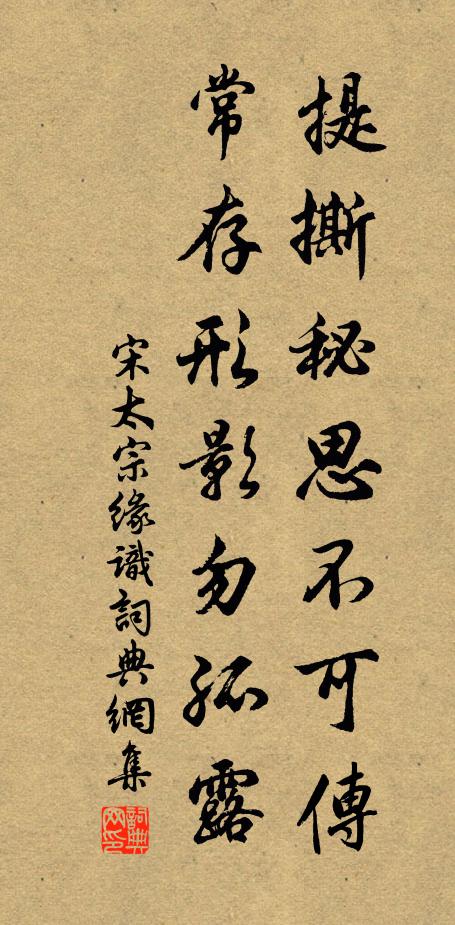 提撕秘思不可傳
常存形影勿孤露
宋太宗緣識詞典網集
詞典网印